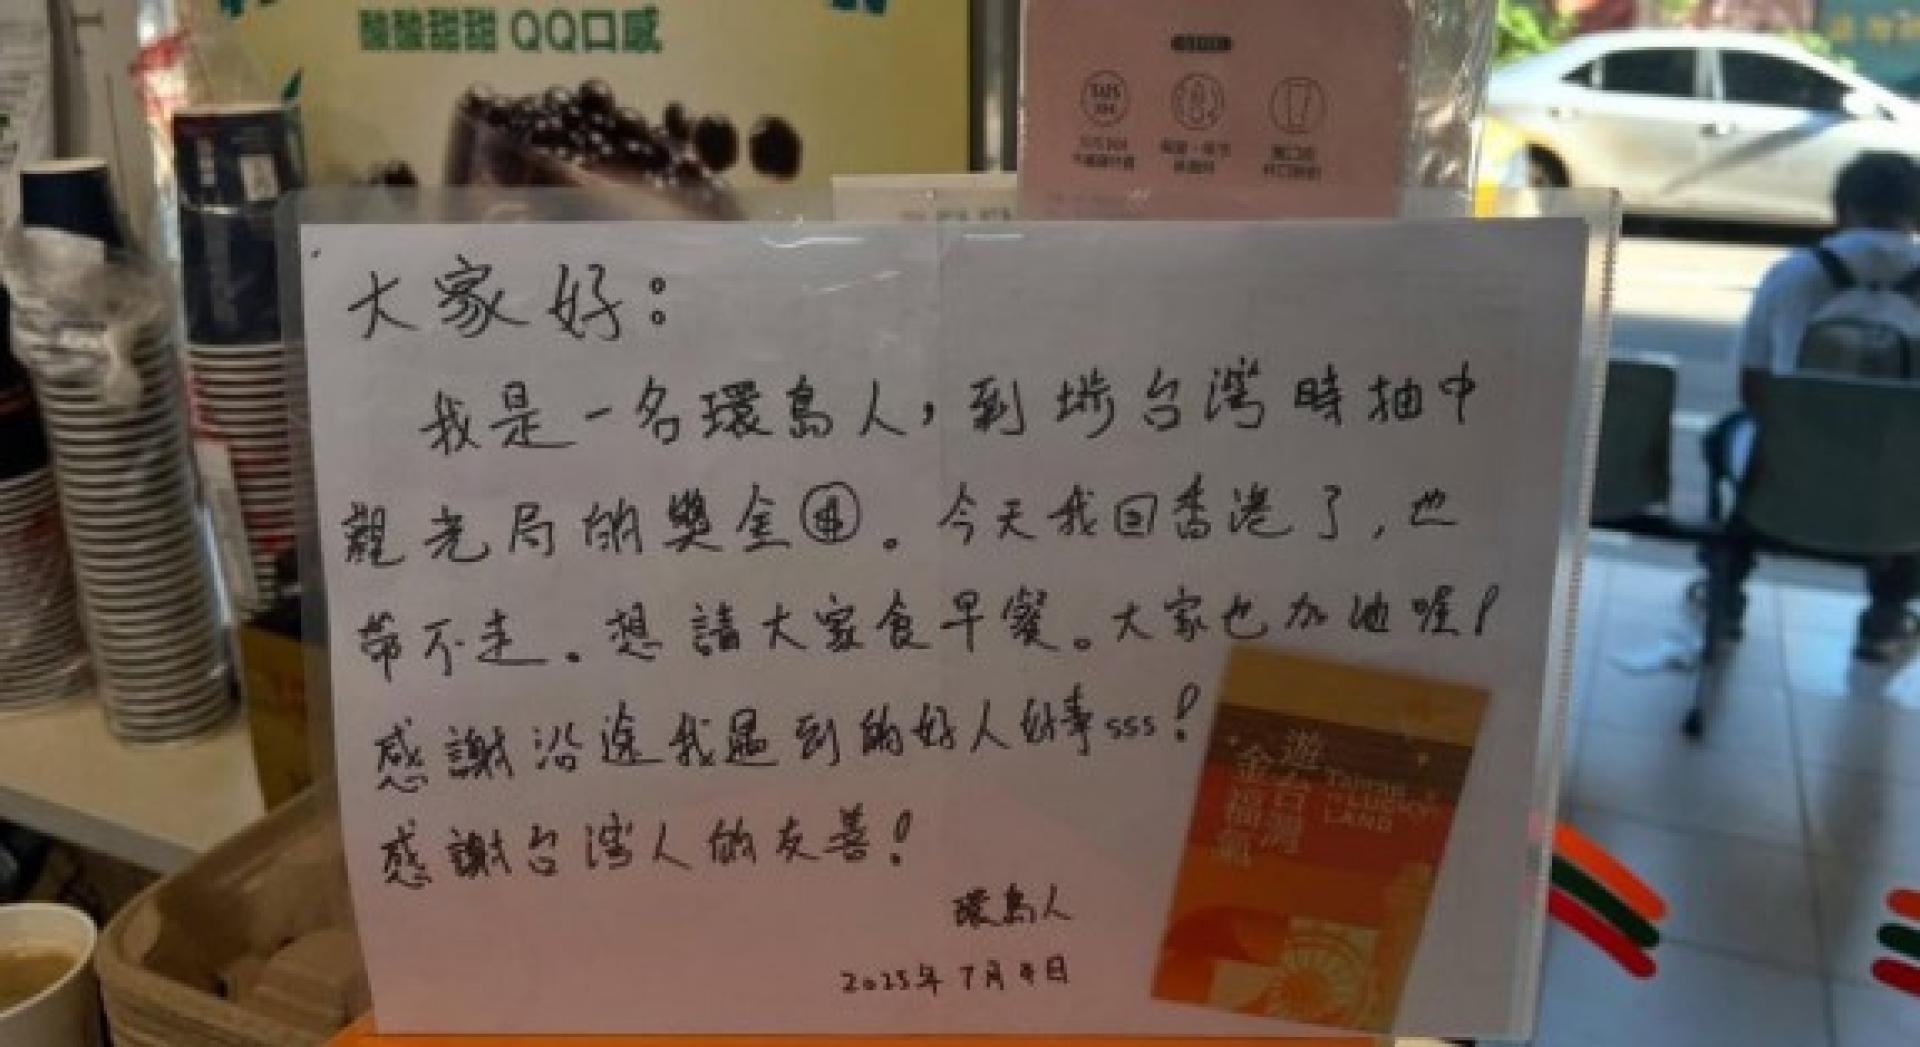 酸酸甜甜 QQ口感
大家好：
我是一名環島人，到埗台灣時抽中
觀光局的獎金。今天我回香港了，也
帶不走。想請大家食早餐。大家也加油喔！
感謝沿途我遇到的好人好事sss！
感謝台灣人的友善！
環島人
2025年7月4日
遊台灣
金福氣
Taiwan
the Lucky
LAND